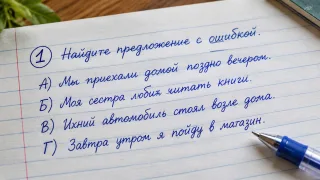 1 Найдите предложение с ошибкой.
А) Мы приехали домой поздно вечером.
Б) Моя сестра любих читать книги.
В) Ихний автомобиль стоял возле дома.
Г) Завтра утром я пойду в магазин.